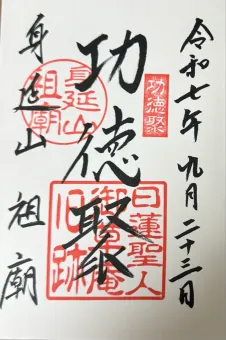 令和七年九月二十三日
功徳聚
功徳聚
身延山
祖廟
日蓮聖人
御草庵
旧跡
身延山 祖廟